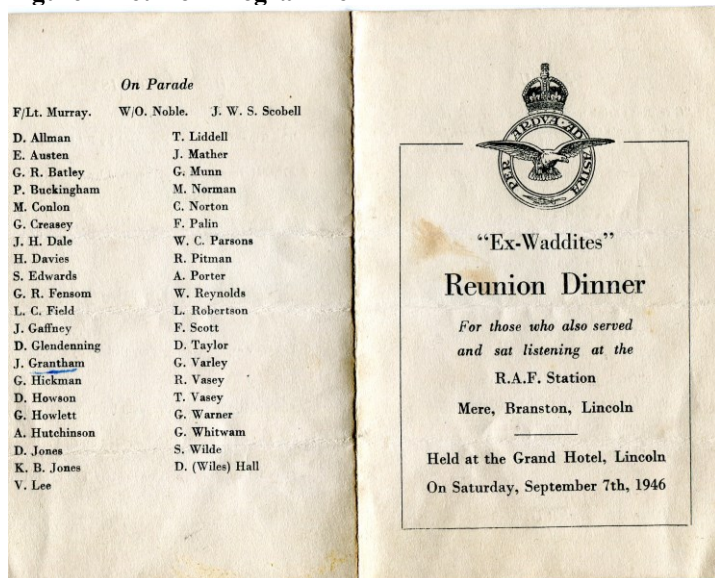 On Parade
F/Lt. Murray. W/O. Noble. J. W. S. Scobell
D. Allman
E. Austen
G. R. Batley
P. Buckingham
M. Conlon
G. Creasey
J. H. Dale
H. Davies
S. Edwards
G. R. Fensom
L. C. Field
J. Gaffney
D. Glendenning
J. Grantham
G. Hickman
D. Howson
G. Howlett
A. Hutchinson
D. Jones
K. B. Jones
V. Lee
T. Liddell
J. Mather
G. Munn
M. Norman
C. Norton
F. Palin
W. C. Parsons
R. Pitman
A. Porter
W. Reynolds
L. Robertson
F. Scott
D. Taylor
G. Varley
R. Vasey
T. Vasey
G. Warner
G. Whitwam
S. Wilde
D. (Wiles) Hall
PER ARDVA AD ASTRA
"Ex-Waddites"
Reunion Dinner
For those who also served
and sat listening at the
R.A.F. Station
Mere, Branston, Lincoln
Held at the Grand Hotel, Lincoln
On Saturday, September 7th, 1946